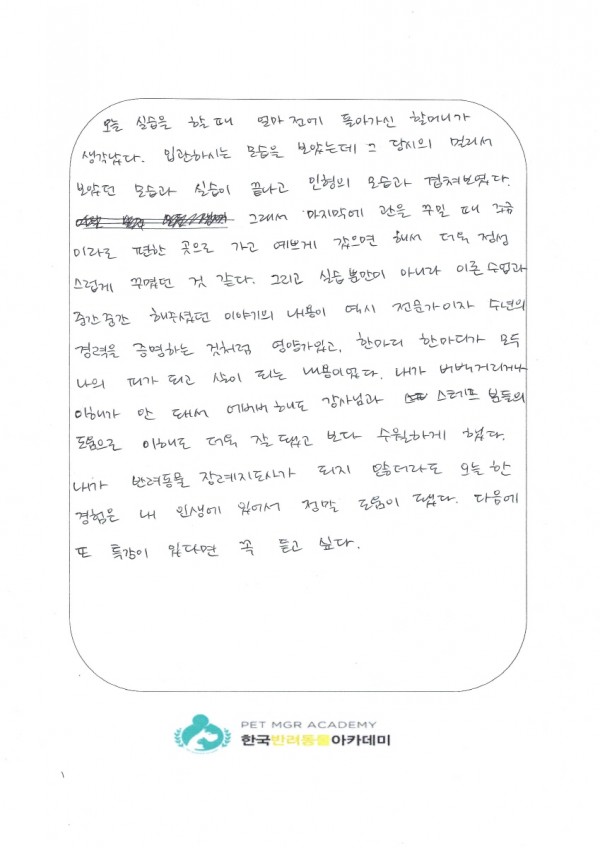 오늘 실습을 할 때 얼마 전에 돌아가신 할머니가
생각났다. 입관하시는 모습을 보았는데 그 당시의 멀리서
보았던 모습과 실습이 끝나고 인형의 모습과 겹쳐보였다.
그래서 마지막에 관을 꾸밀 때 조금
이라도 편한 곳으로 가고 예쁘게 갔으면 해서 더욱 정성
스럽게 꾸몄던 것 같다. 그리고 실습뿐만이 아니라 이론 수업과
중간중간 해주셨던 이야기의 내용이 역시 전문가이자 수년의
경력을 증명하는 것처럼 영양가있고, 한마디 한마디가 모두
나의 피가 되고 살이 되는 내용이었다. 내가 버벅거리거나
이해가 안 돼서 어버버 해도 강사님과 스테프 분들의
도움으로 이해도 더욱 잘 됐고 보다 수월하게 했다.
내가 반려동물 장례지도사가 되지 않더라도 오늘 한
경험은 내 인생에 있어서 정말 도움이 됐다. 다음에
또 특강이 있다면 꼭 듣고 싶다.
PET MGR ACADEMY
한국반려동물아카데미